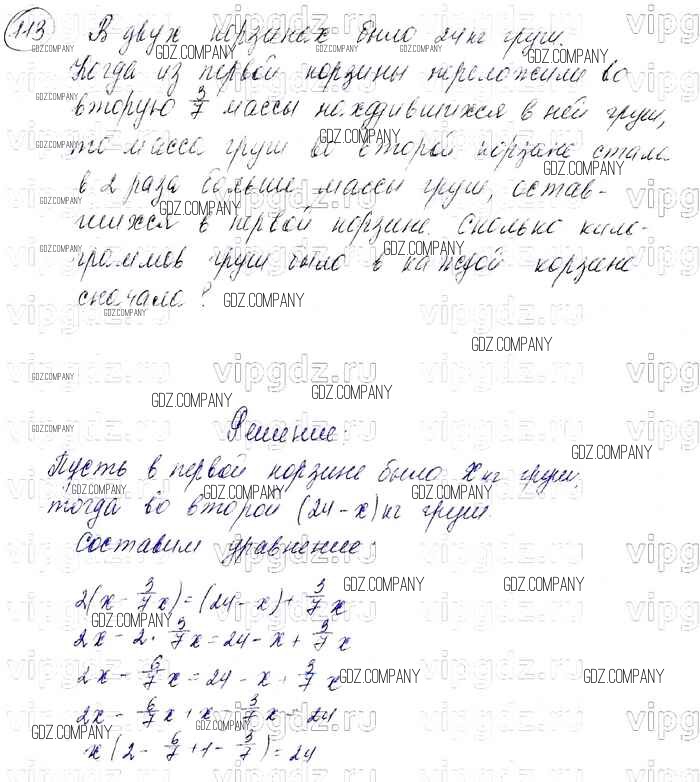 113 В двух корзинах было 24 кг груш.
Когда из первой корзины переложили во
вторую 3/7 массы находившихся в ней груш,
то масса груш в второй корзине стала
в 2 раза больше массы груш, остав-
шихся в первой корзине. Сколько кило-
граммов груш было в каждой корзине
сначала?
GDZ.COMPANY
vipgdz.ru
Решение:
Пусть в первой корзине было x кг груш,
тогда во второй (24-x) кг груш
Составим уравнение:
2(x - 3/7 x) = (24 - x) + 3/7 x
2x - 2 · 3/7 x = 24 - x + 3/7 x
2x - 6/7 x = 24 - x + 3/7 x
2x - 6/7 x + x - 3/7 x = 24
x(2 - 6/7 + 1 - 3/7) = 24